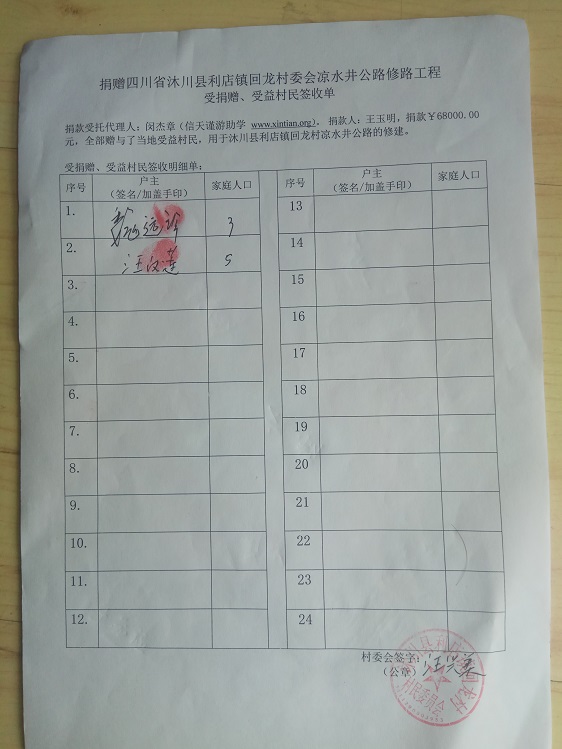 捐赠四川省沐川县利店镇回龙村委会凉水井公路修路工程
受捐赠、受益村民签收单
捐款受托代理人：闵杰章（信天谨游助学 www.xintian.org）。 捐款人：王玉明，捐款￥68000.00
元，全部赠与了当地受益村民，用于沐川县利店镇回龙村凉水井公路的修建。
受捐赠、受益村民签收明细单：
序号 户主 家庭人口 序号 户主 家庭人口
（签名/加盖手印） （签名/加盖手印）
1. 3 13
2. 汪汉莲 5 14
3. 15
4. 16
5. 17
6. 18
7. 19
8. 20
9. 21
10. 22
11. 23
12. 24
村委会签字：汪
（公章）
村民委员会